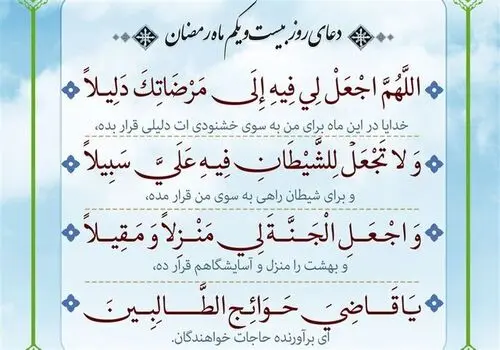 دعای روز بیست و یکم ماه رمضان
اللَّهُمَّ اجْعَلْ لِي فِيهِ إِلَى مَرْضَاتِكَ دَلِيلاً
خدایا در این ماه برای من به سوی خشنودی ات دلیلی قرار بده،
وَ لا تَجْعَلْ لِلشَّيْطَانِ فِيهِ عَلَيَّ سَبِيلاً
و برای شیطان راهی به سوی من قرار مده،
وَ اجْعَلِ الْجَنَّةَ لِي مَنْزِلاً وَ مَقِيلاً
و بهشت را منزل و آسایشگاهم قرار ده،
يَا قَاضِيَ حَوَائِجِ الطَّالِبِينَ
ای برآورنده حاجات خواهندگان.